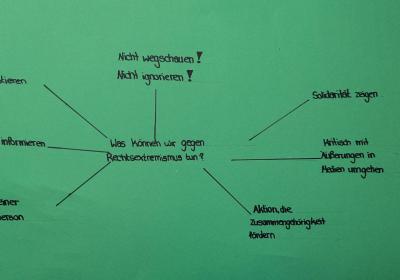 Nicht wegschauen!
Nicht ignorieren!
Solidarität zeigen
informieren
Was können wir gegen
Rechtsextremismus tun?
Kritisch mit
Äußerungen in
Medien umgehen
Aktion, die
Zusammengehörigkeit
fördern